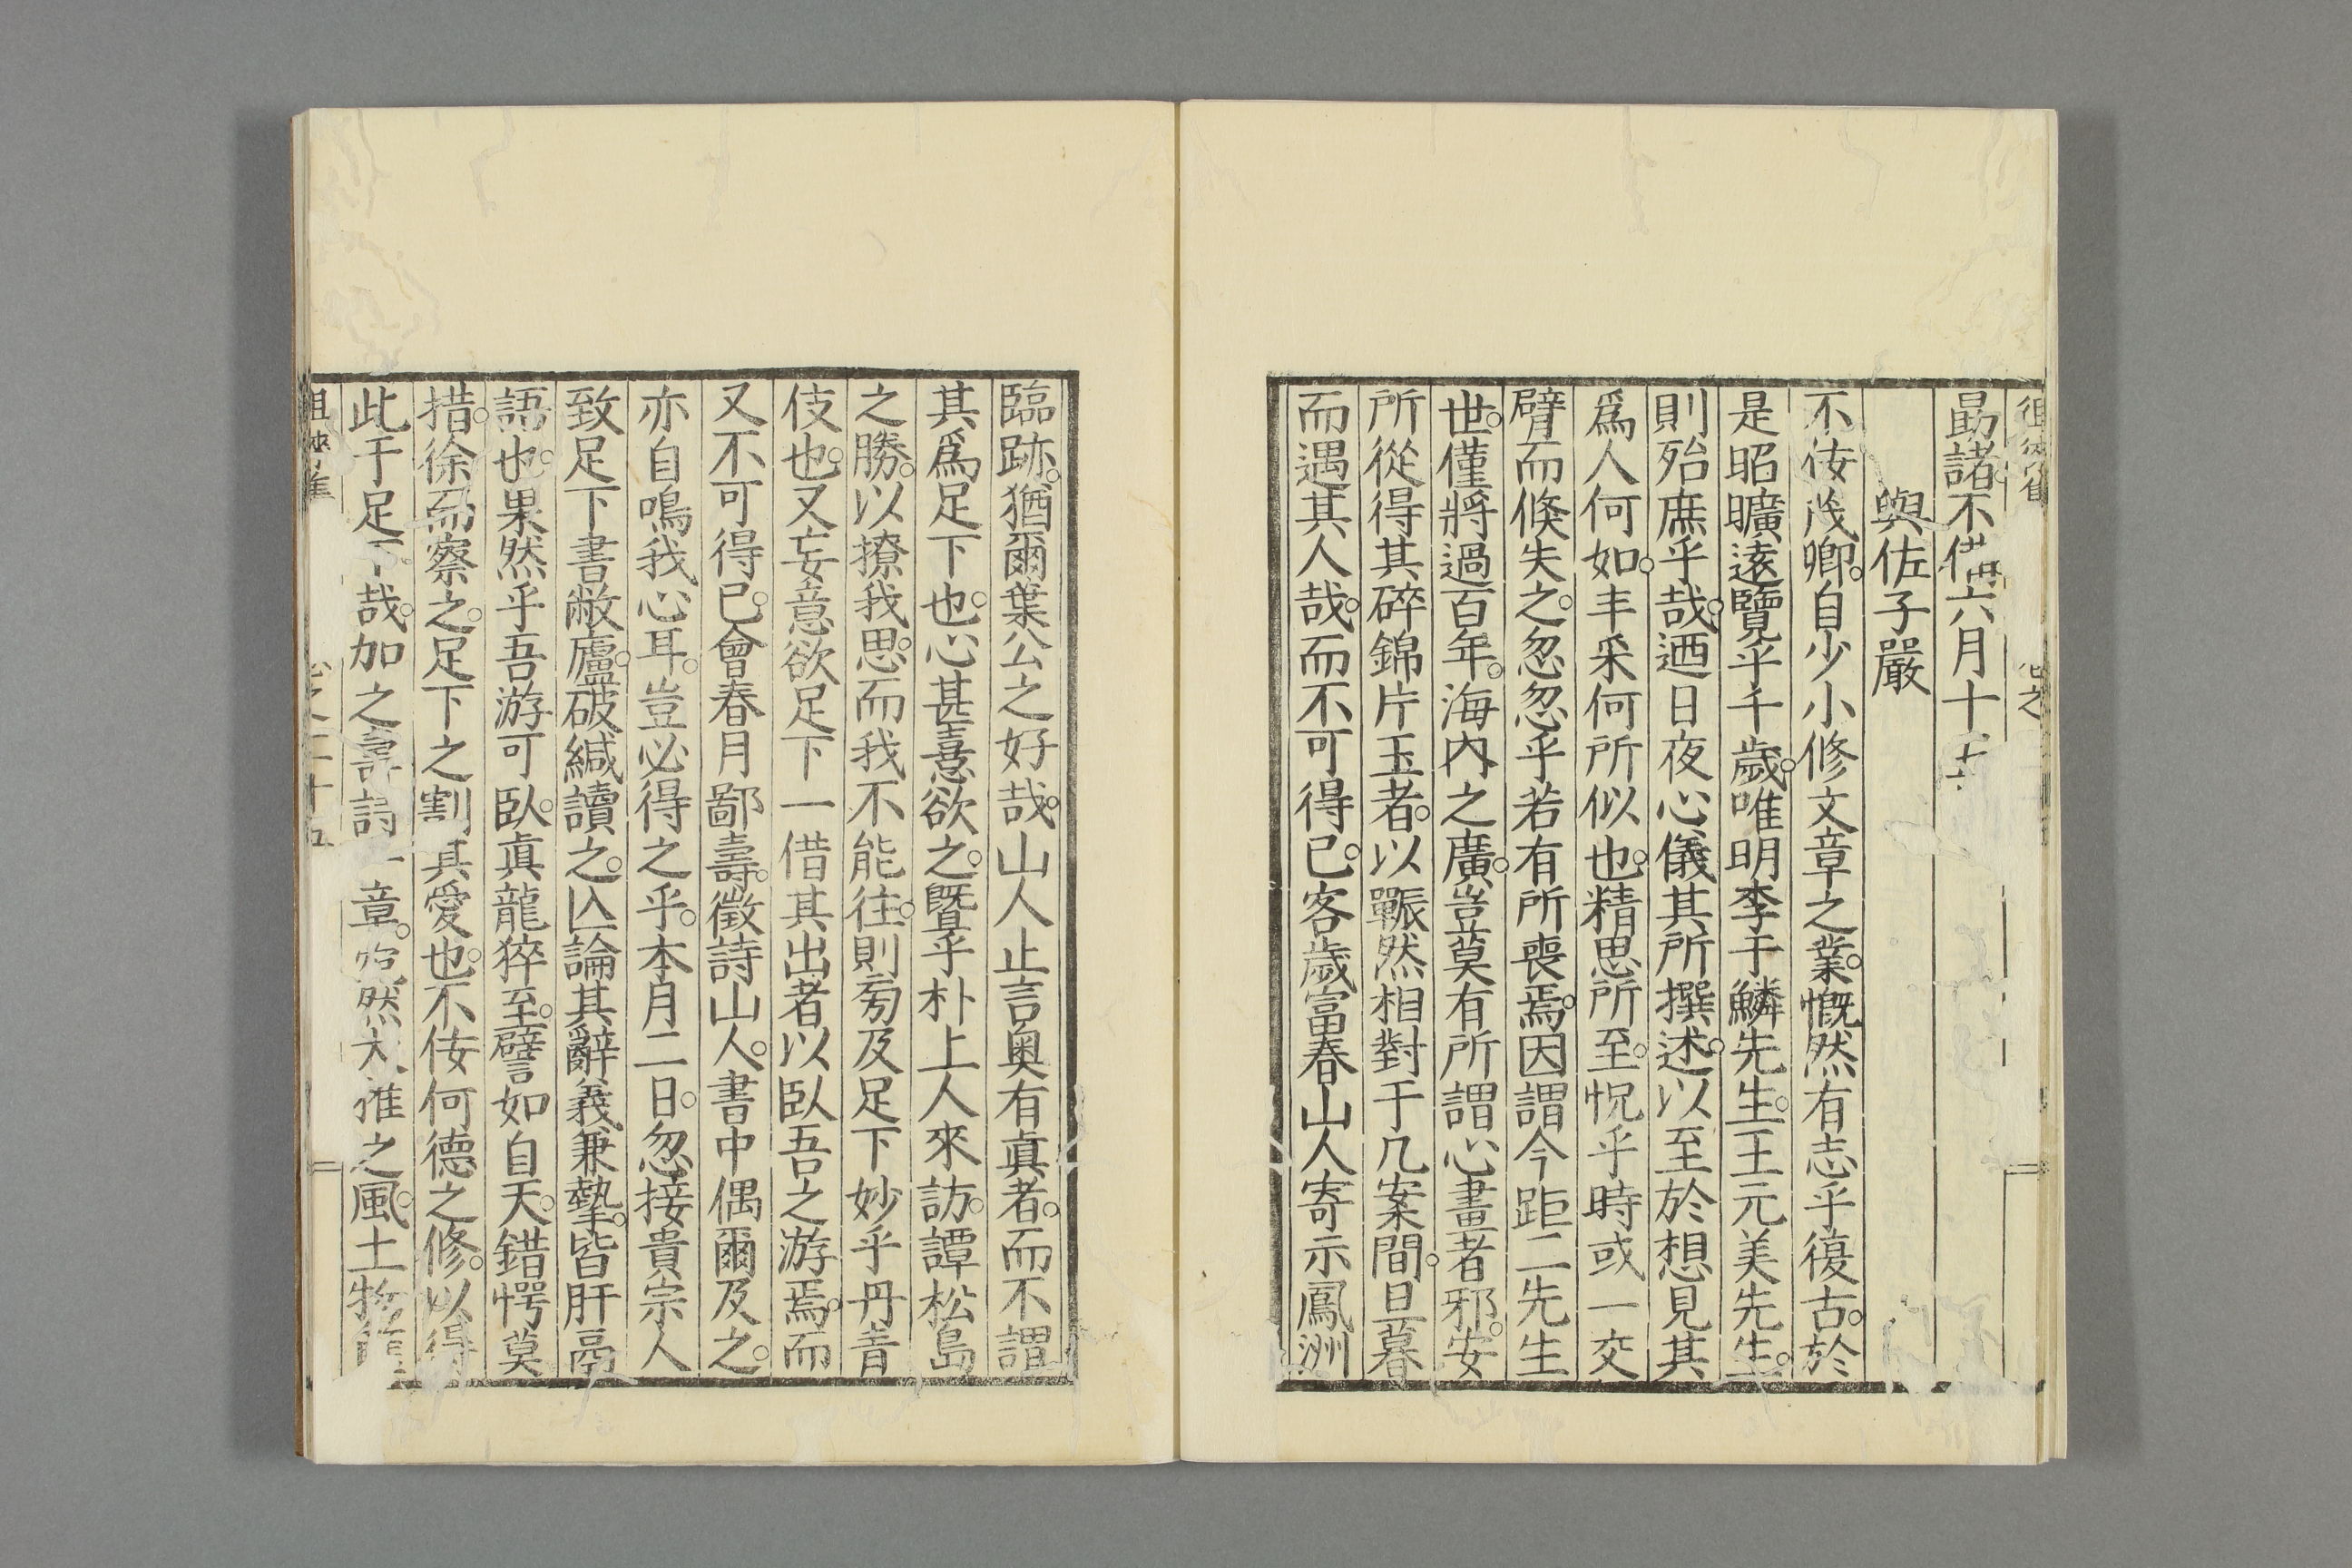 勗諸。不備六月十
與佐子嚴
不佞茂卿。自少小修文章之業。慨然有志乎復古。於
是昭曠遠覽乎千歲。唯明李于鱗先生。王元美先生。
則殆庶乎哉。迺日夜心儀其所撰述。以至於想見其
爲人何如。丰采何所似也。精思所至。怳乎時或一交
臂而倏失之。忽忽乎若有所喪焉。因謂今距二先生
世。僅將過百年。海內之廣。豈莫有所謂心畫者邪。安
所從得其碎錦片玉者。以囅然相對于几案間。旦暮
而遇其人哉。而不可得已。客歲富春山人寄示鳳洲
臨跡。猶爾葉公之好哉。山人止言奥有眞者。而不謂
其爲足下也。心甚憙欲之。曁乎朴上人來訪。譚松島
之勝。以撩我思。而我不能往。則芻及足下妙乎丹青
伎也。又妄意欲足下一借其出者以臥吾之游焉。而
又不可得已。會春月鄙壽。徵詩山人。書中偶爾及之。
亦自鳴我心耳。豈必得之乎。本月二日。忽接貴宗人
致足下書敝廬。破緘讀之。亾論其辭義兼摯。皆肝鬲
語也。果然乎吾游可臥。眞龍猝至。譬如自天。錯愕莫
措。徐而察之。足下之割其愛也。不佞何德之修。以得
此于足下哉。加之壽詩一章。宛然大雅之風。土物